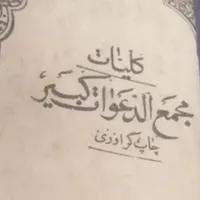 کلیات
مجمع الدعوات کبیر
چاپ کراوری